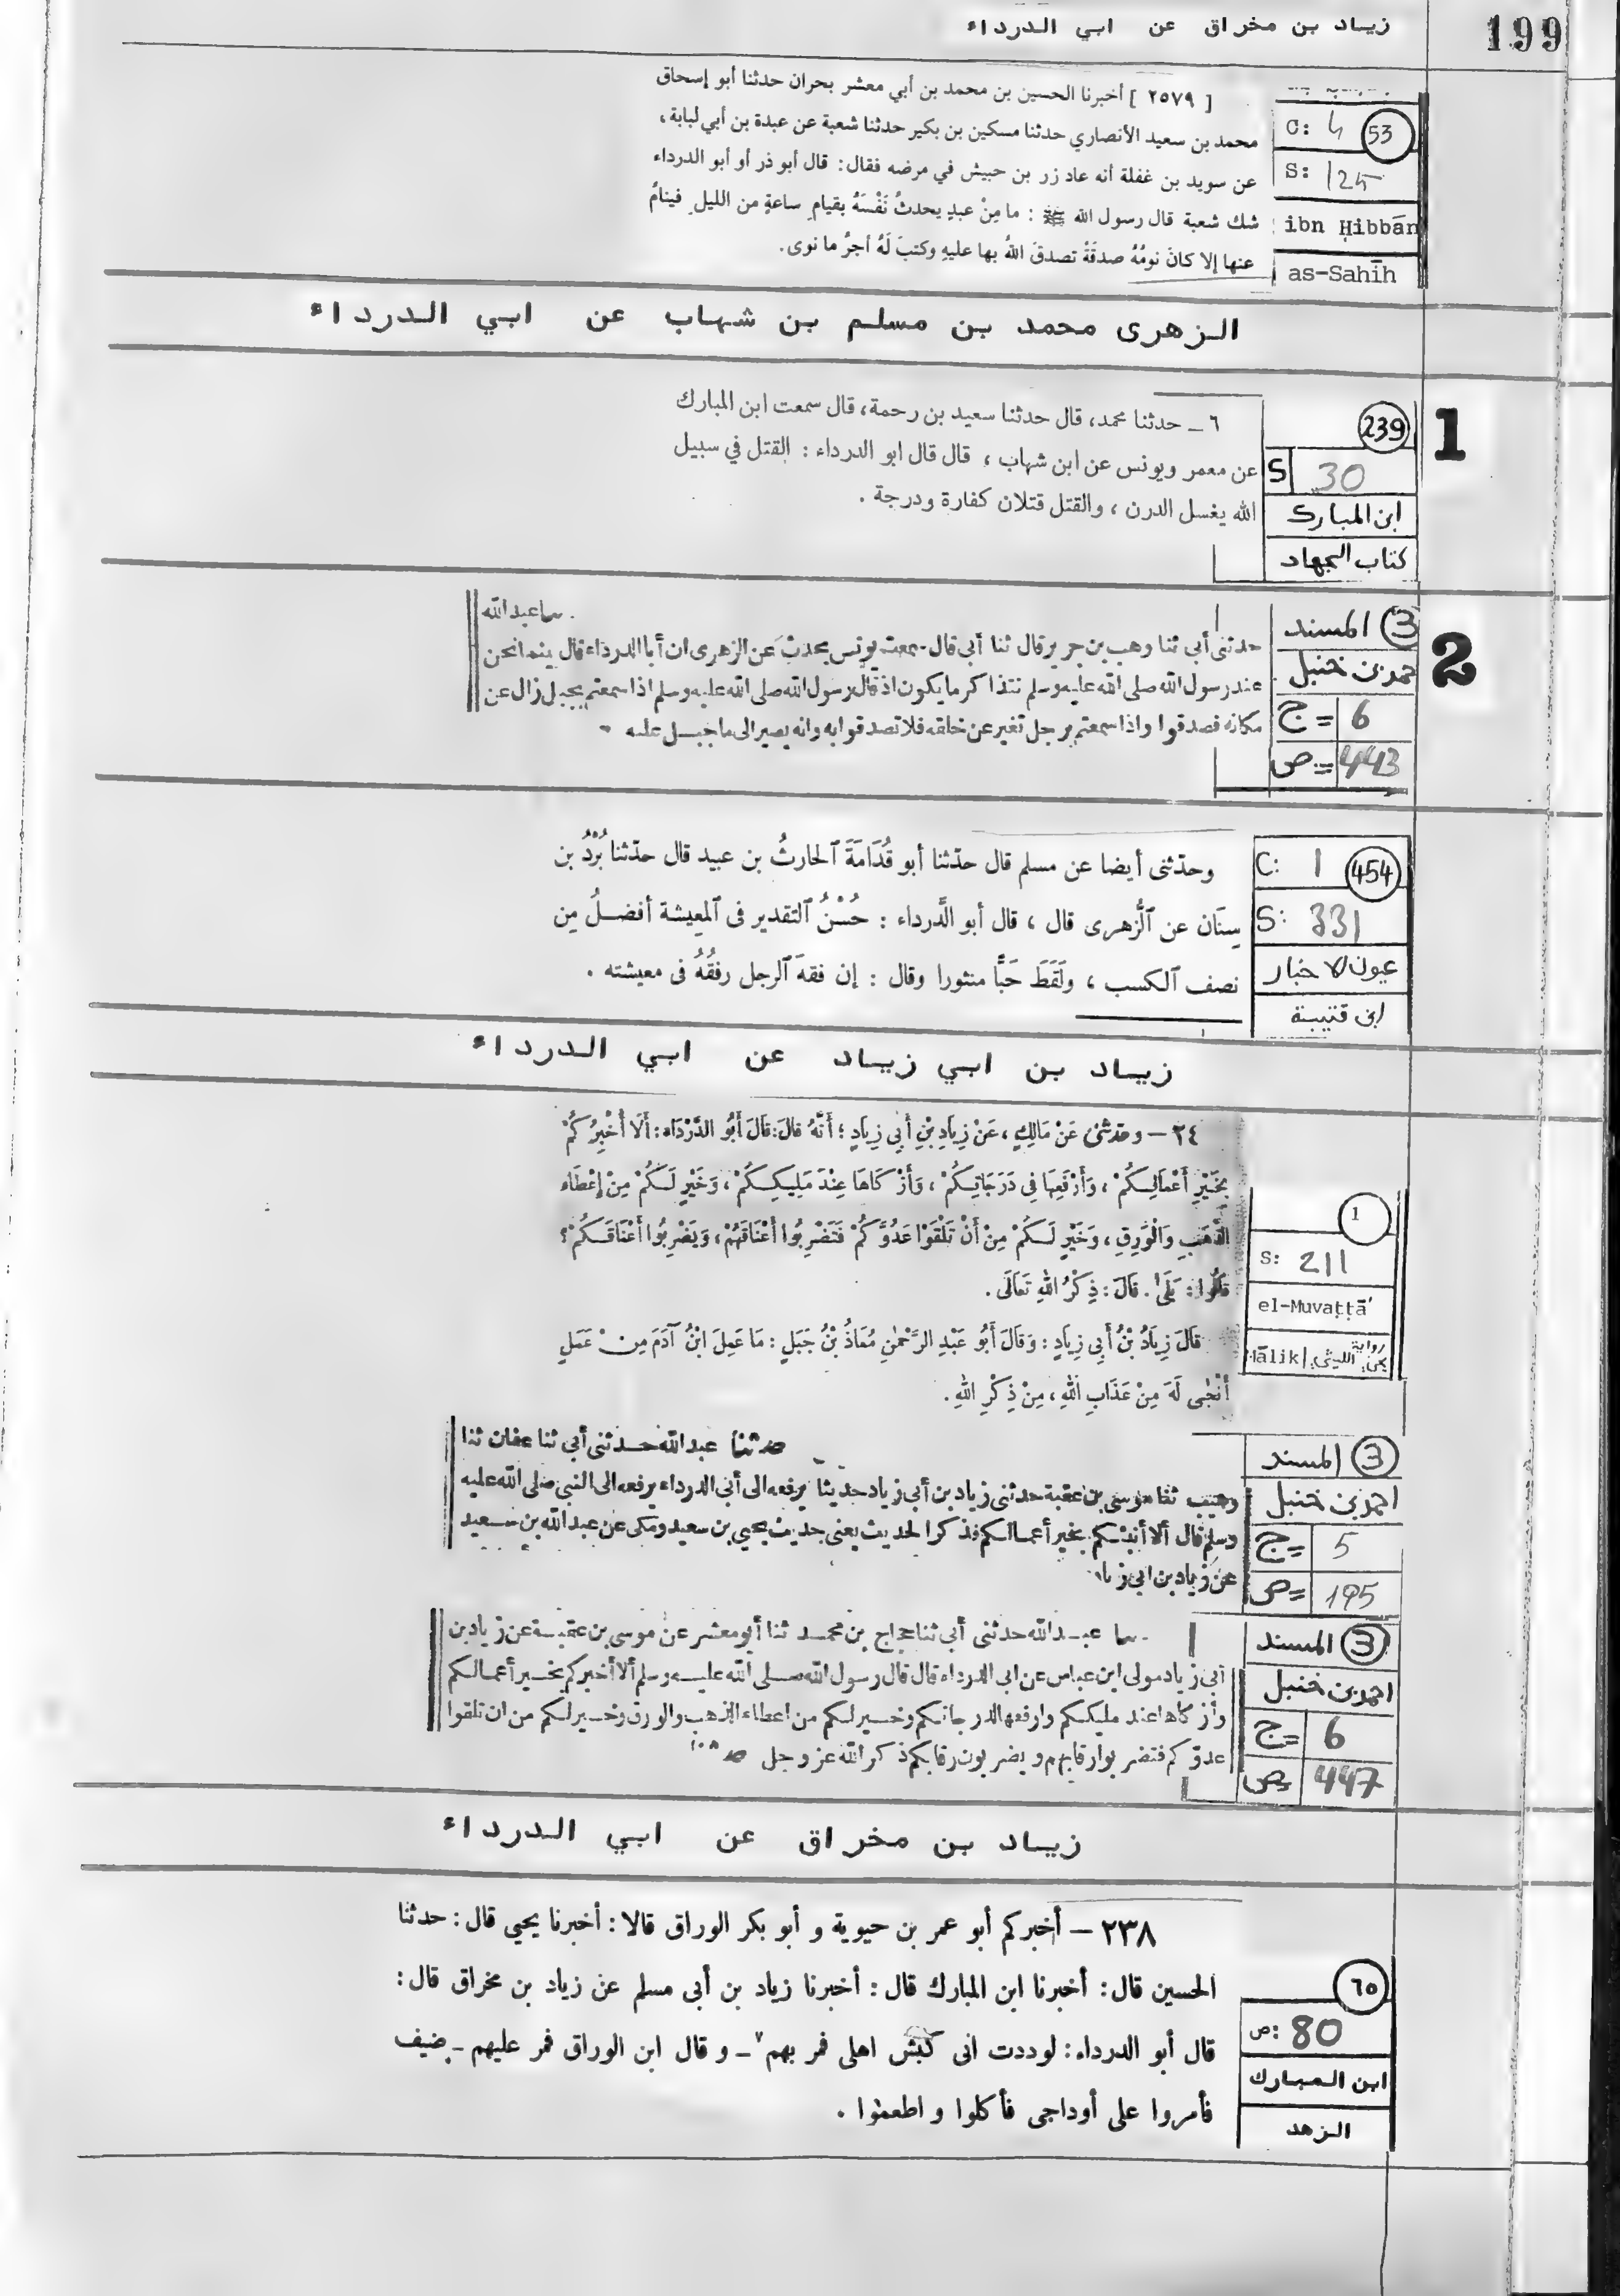 زيـاد بن مخراق عن ابي الـدرداء
199
[ ٢٥٧٩ ] أخبرنا الحسين بن محمد بن أبي معشر بحران حدثنا أبو إسحاق
محمد بن سعيد الأنصاري حدثنا مسكين بن بكير حدثنا شعبة عن عبدة بن أبي لبابة،
عن سويد بن غفلة أنه عاد زر بن حبيش في مرضه فقال: قال أبو ذر أو أبو الدرداء
شك شعبة قال رسول الله ﷺ : ما مِنْ عبدٍ يحدثُ نَفْسَهُ بقيامِ ساعةٍ من الليلِ فينامُ
عنها إلا كانَ نومُهُ صدقَةً تصدقَ اللهُ بها عليهِ وكتبَ لَهُ أجرُ ما نوى.
53
C: 4
S: 125
ibn Ḥibbān
as-Sahīh
الـزهرى محمد بن مسلم بن شهاب عن ابي الـدرداء
1
٦ ــ حدثنا محمد، قال حدثنا سعيد بن رحمة، قال سمعت ابن المبارك
عن معمر ويونس عن ابن شهاب ، قال قال ابو الدرداء : القتل في سبيل
الله يغسل الدرن ، والقتل قتلان كفارة ودرجة .
239
S 30
ابن المبارك
كتاب الجهاد
2
عبد الله
حدثنى أبى ثنا وهب بن جرير قال ثنا أبى قال سمعت يونس يحدث عن الزهرى ان أبا الدرداء قال بينما نحن
عند رسول الله صلى الله عليه وسلم نتذاكر ما يكون اذ قال رسول الله صلى الله عليه وسلم اذا سمعتم بجبل زال عن
مكانه فصدقوا واذا سمعتم برجل تغير عن خلقه فلا تصدقوا به وانه يصير الى ما جبل عليه
3 المسند
احمد بن حنبل
ج = 6
ص = 443
وحدّثنى أيضا عن مسلم قال حدّثنا أبو قُدَامَةَ الحارثُ بن عبيد قال حدّثنا بُرْدُ بن
سِنَان عن الزُّهرى قال ، قال أبو الدَّرداء : حُسْنُ التقدير فى المعيشة أفضلُ مِن
نصف الكسب ، ولَقَطَ حَبًّا منثورا وقال : إن فقهَ الرجل رفقُهُ فى معيشته .
454
C: 1
S: 331
عيون الاخبار
ابن قتيبة
زيـاد بن ابي زيـاد عن ابي الـدرداء
٢٤ – وحدثنى عَنْ مَالِكٍ ، عَنْ زِيَادِ بْنِ أَبِى زِيَادٍ ؛ أَنَّهُ قَالَ: قَالَ أَبُو الدَّرْدَاء: أَلَا أُخْبِرُكُمْ
بِخَيْرِ أَعْمَالِكُمْ ، وَأَرْفَعِهَا فِى دَرَجَاتِكُمْ ، وَأَزْكَاهَا عِنْدَ مَلِيكِكُمْ ، وَخَيْرٍ لَكُمْ مِنْ إِعْطَاء
الذَّهَبِ وَالْوَرِقِ ، وَخَيْرٍ لَكُمْ مِنْ أَنْ تَلْقَوْا عَدُوَّكُمْ فَتَضْرِبُوا أَعْنَاقَهُمْ ، وَيَضْرِبُوا أَعْنَاقَكُمْ ؟
قَالُوا : بَلَىٰ . قَالَ : ذِكْرُ اللهِ تَعَالَى .
قَالَ زِيَادُ بْنُ أَبِى زِيَادٍ : وَقَالَ أَبُو عَبْدِ الرَّحْمٰنِ مُعَاذُ بْنُ جَبَلٍ : مَا عَمِلَ ابْنُ آدَمَ مِنْ عَمَلٍ
أَنْجَى لَهُ مِنْ عَذَابِ اللهِ ، مِنْ ذِكْرِ اللهِ .
1
S: 211
el-Muvaṭṭā'
Mālik رواية يحيى الليثي
حدثنا عبد الله حدثنى أبى ثنا عفان ثنا
وهيب ثنا موسى بن عقبة حدثنى زياد بن أبى زياد حديثا يرفعه الى أبى الدرداء يرفعه الى النبى صلى الله عليه
وسلم قال ألا أنبئكم بخير أعمالكم فذكرا لحديث يعنى حديث يحيى بن سعيد ومكى عن عبد الله بن سعيد
عن زياد بن ابى زياد
3 المسند
احمد بن حنبل
ج = 5
ص = 195
عبد الله حدثنى أبى ثنا حجاج بن محمد ثنا أبو معشر عن موسى بن عقبة عن زياد بن
أبى زياد مولى ابن عباس عن ابى الدرداء قال قال رسول الله صلى الله عليه وسلم ألا أخبركم بخير أعمالكم
وأزكاها عند مليككم وارفعها لدرجاتكم وخير لكم من اعطاء الذهب والورق وخير لكم من ان تلقوا
عدوكم فتضربوا رقابهم ويضربون رقابكم ذكر الله عز وجل
3 المسند
احمد بن حنبل
ج = 6
ص = 447
زيـاد بن مخراق عن ابي الـدرداء
٢٣٨ – أخبركم أبو عمر بن حيوية و أبو بكر الوراق قالا : أخبرنا يحيى قال : حدثنا
الحسين قال : أخبرنا ابن المبارك قال : أخبرنا زياد بن أبى مسلم عن زياد بن مخراق قال :
قال أبو الدرداء : لوددت انى كبش اهلى فمر بهم٧ – و قال ابن الوراق فمر عليهم – ضيف
فأمروا على أوداجى فأكلوا و اطعموا .
٦٥
ص: 80
ابن المبارك
الـزهد